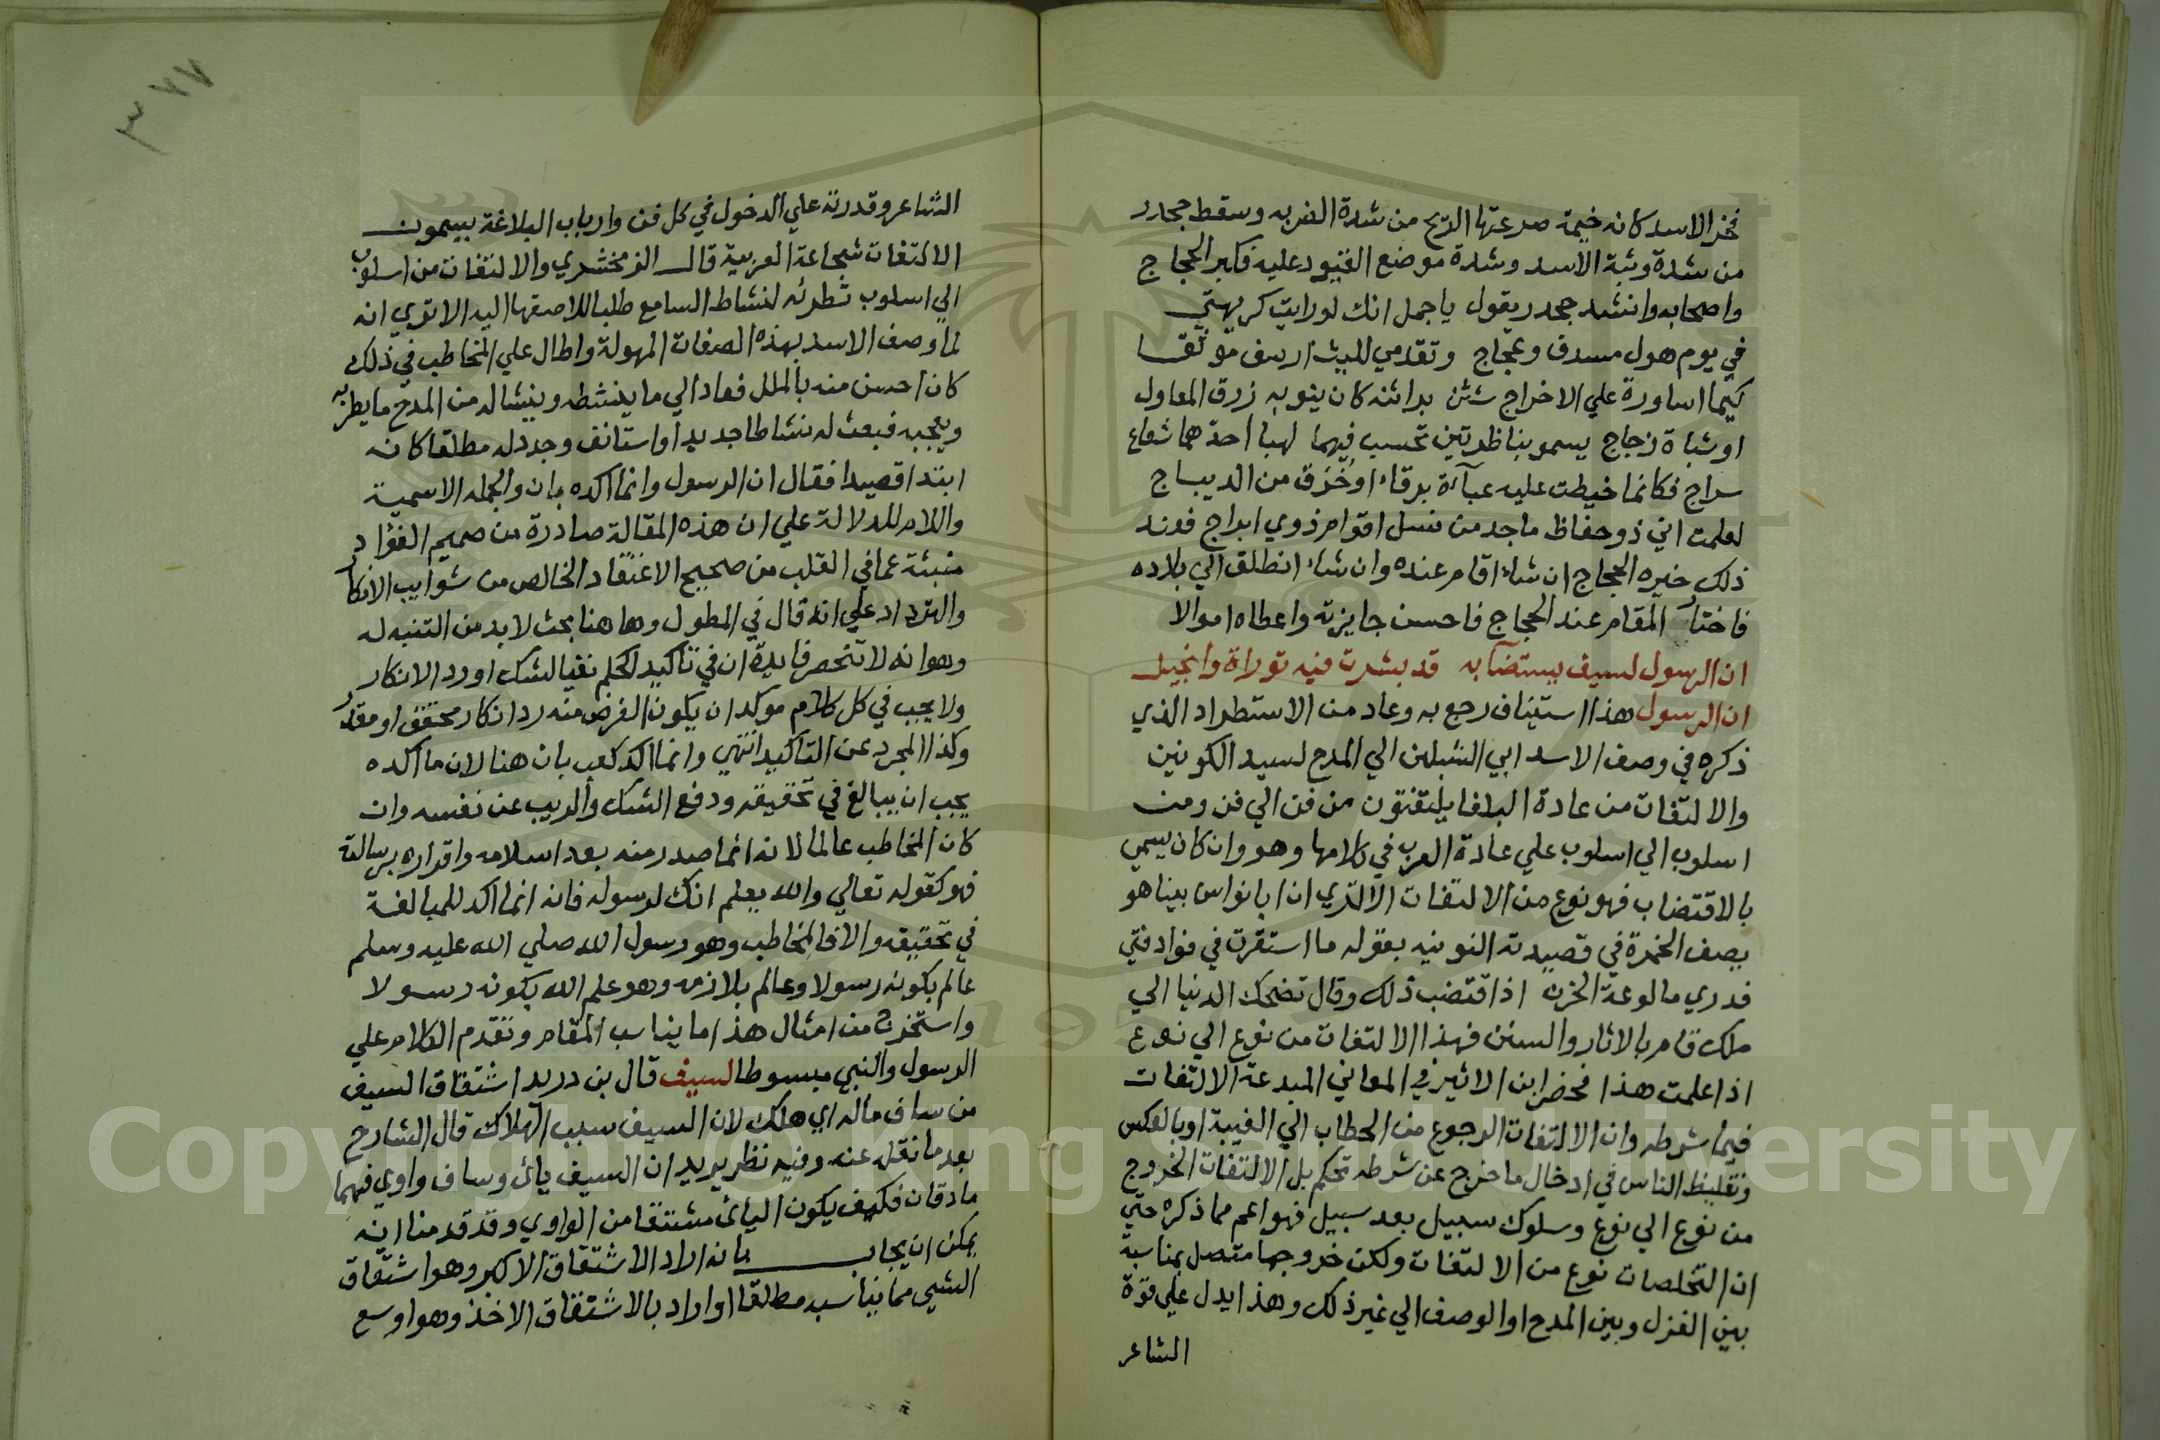 فخر الاسد كانه خيمة صرعتها الريح من شدة الضربه وسقط جحدر
من شدة وثبة الاسد وشدة موضع القيود عليه فكبر الحجاج
واصحابه وانشد جحدر يقول ياجمل انك لورايت كريهتي
في يوم هول مسدف وعجاج وتقدمي لليث ارسف موثقا
كيما اساورة علي الاخراج شثن براثنه كان ينوبه زرق المعاول
او شباة زجاج يسمو بناظرتين تحسب فيهما لهبا احدهما شعاع
سراج فكانما خيطت عليه عباءة برقاء او خرق من الديباج
لعلمت اني ذو حفاظ ماجد من نسل اقوام ذوي ابراج فعند
ذلك خيره الحجاج ان شاء اقام عنده وان شاء انطلق الي بلاده
فاختار المقام عند الحجاج فاحسن جايزته واعطاه اموالا
ان الرسول لسيف يستضآبه قد بشرت فيه توراة وانجيل
ان الرسول هذا استيناف رجع به وعاد من الاستطراد الذي
ذكره في وصف الاسد ابي الشبلين الي المدح لسيد الكونين
والالتفات من عادة البلغا يلتفتون من فن الي فن ومن
اسلوب الي اسلوب علي عادة العرب في كلامها وهو وان كان يسمي
بالاقتضاب فهو نوع من الالتفات الا تري ان ابا نواس بينا هو
يصف الخمرة في قصيدته النونيه بقوله ما استقرت في فواد فتي
فدري مالوعة الحزن اذا قتضب ذلك وقال تضحك الدنيا الي
ملك قام بالاثار والسنن فهذا الالتفات من نوع الي نوع
اذا علمت هذا فحضر ابن الاثير في المعاني المبدعة الالتفات
فيما شرطه وان الالتفات الرجوع من الخطاب الي الغيبة او بالعكس
وتغليظ الناس في ادخال ما خرج عن شرطه تحكم بل الالتفات الخروج
من نوع الي نوع وسلوك سبيل بعد سبيل فهو اعم مما ذكره حتي
ان التخلصات نوع من الالتفات ولكن خروجها متصل بمناسبة
بين الغزل وبين المدح او الوصف الي غير ذلك وهذا يدل علي قوة
الشاعر
٣٧٧
الشاعر وقدرته علي الدخول في كل فن وارباب البلاغة يسمون
الالتفات شجاعة العربية قال الزمخشري والالتفات من اسلوب
الي اسلوب تطرئه لنشاط السامع طلبا للاصغاء اليه الا تري انه
لما وصف الاسد بهذه الصفات المهولة واطال علي المخاطب في ذلك
كان احسن منه بالملل فعاد الي ما ينشطه وينشاله من المدح ما يطربه
ويعجبه فبعث له نشاطا جديدا واستانف وجدد له مطلقا كانه
ابتدا قصيدا فقال ان الرسول وانما اكده بان والجمله الاسمية
واللام للدلالة علي ان هذه المقالة صادرة من صميم الفؤاد
منبئة عما في القلب من صحيح الاعتقاد الخالص من شوايب الانكار
والترداد علي انه قال في المطول وها هنا بحث لابد من التنبه له
وهو انه لا تنحصر فايدة ان في تاكيد الحكم نفيا لشك او رد الانكار
ولا يجب في كل كلام موكد ان يكون الغرض منه رد انكار محقق او مقدر
وكذا المجرد عن التاكيد انتهي وانما اكد كعب بان هنا لان ما اكده
يجب ان يبالغ في تحقيقه ودفع الشك والريب عن نفسه وان
كان المخاطب عالما لانه انما صدر منه بعد اسلامه واقراره برسالته
فهو كقوله تعالي والله يعلم انك لرسوله فانه انما اكد للمبالغة
في تحقيقه والا فالمخاطب وهو رسول الله صلي الله عليه وسلم
عالم بكونه رسولا وعالم بلازمه وهو علم الله بكونه رسولا
واستخرج من امثال هذا ما يناسب المقام وتقدم الكلام علي
الرسول والنبي مبسوطا لسيف قال بن دريد اشتقاق السيف
من ساف ماله اي هلك لان السيف سبب الهلاك قال الشارح
بعد ما نقله عنه وفيه نظر يريد ان السيف يائ وساف واوي فهما
مادتان فكيف يكون اليائ مشتقا من الواوي وقد قدمنا انه
يمكن ان يجاب بانه اراد الاشتقاق الاكبر وهو اشتقاق
الشيي مما يناسبه مطلقا او اراد بالاشتقاق الاخذ وهو اوسع
Copyright © King Saud University